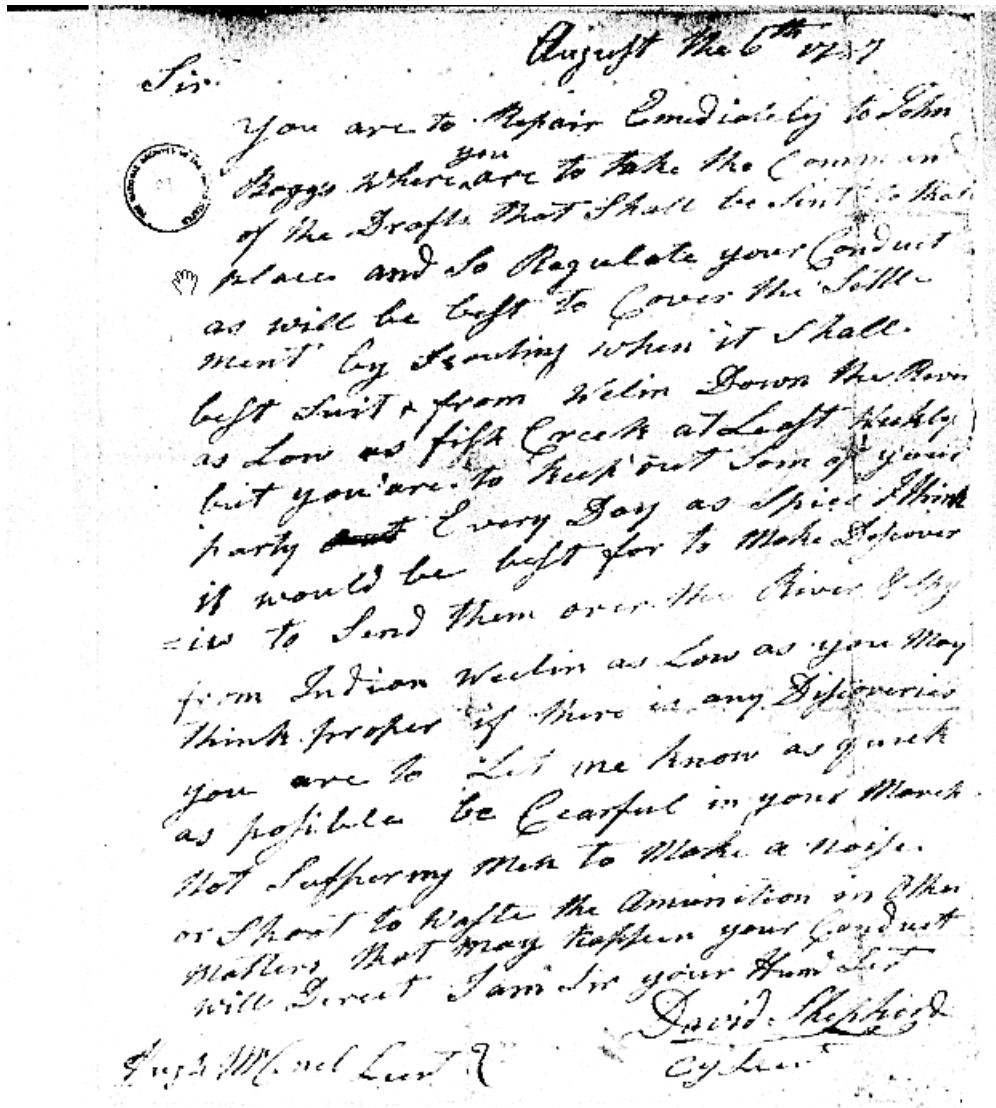 August the 6th 1777
Sir
you are to Repair Emediately to John
Boggs where you are to take the Command
of the Drafts that Shall be Sent to that
place and So Regulate your Conduct
as will be best to Cover the Settle-
ment by Scouting when it Shall
best Suit & from Welin Down the River
as Low as fish Creek at Least Weekly
but you are to keep out Som of your
party Every Day as Spies I think
it would be best for to Make Discover
=is to Send them over the River &
from Indian Weelin as Low as you May
think proper if there is any Discoveries
you are to Let me know as quick
as posible be Cearful in your March
Not Suffering Men to Make a noise
or Shoot to Waste the Amunition in Other
Matters that may happen your Conduct
will Direct I am Sir your Hum Sert
David Shepherd
Cy Lieut
Hugh Lieut